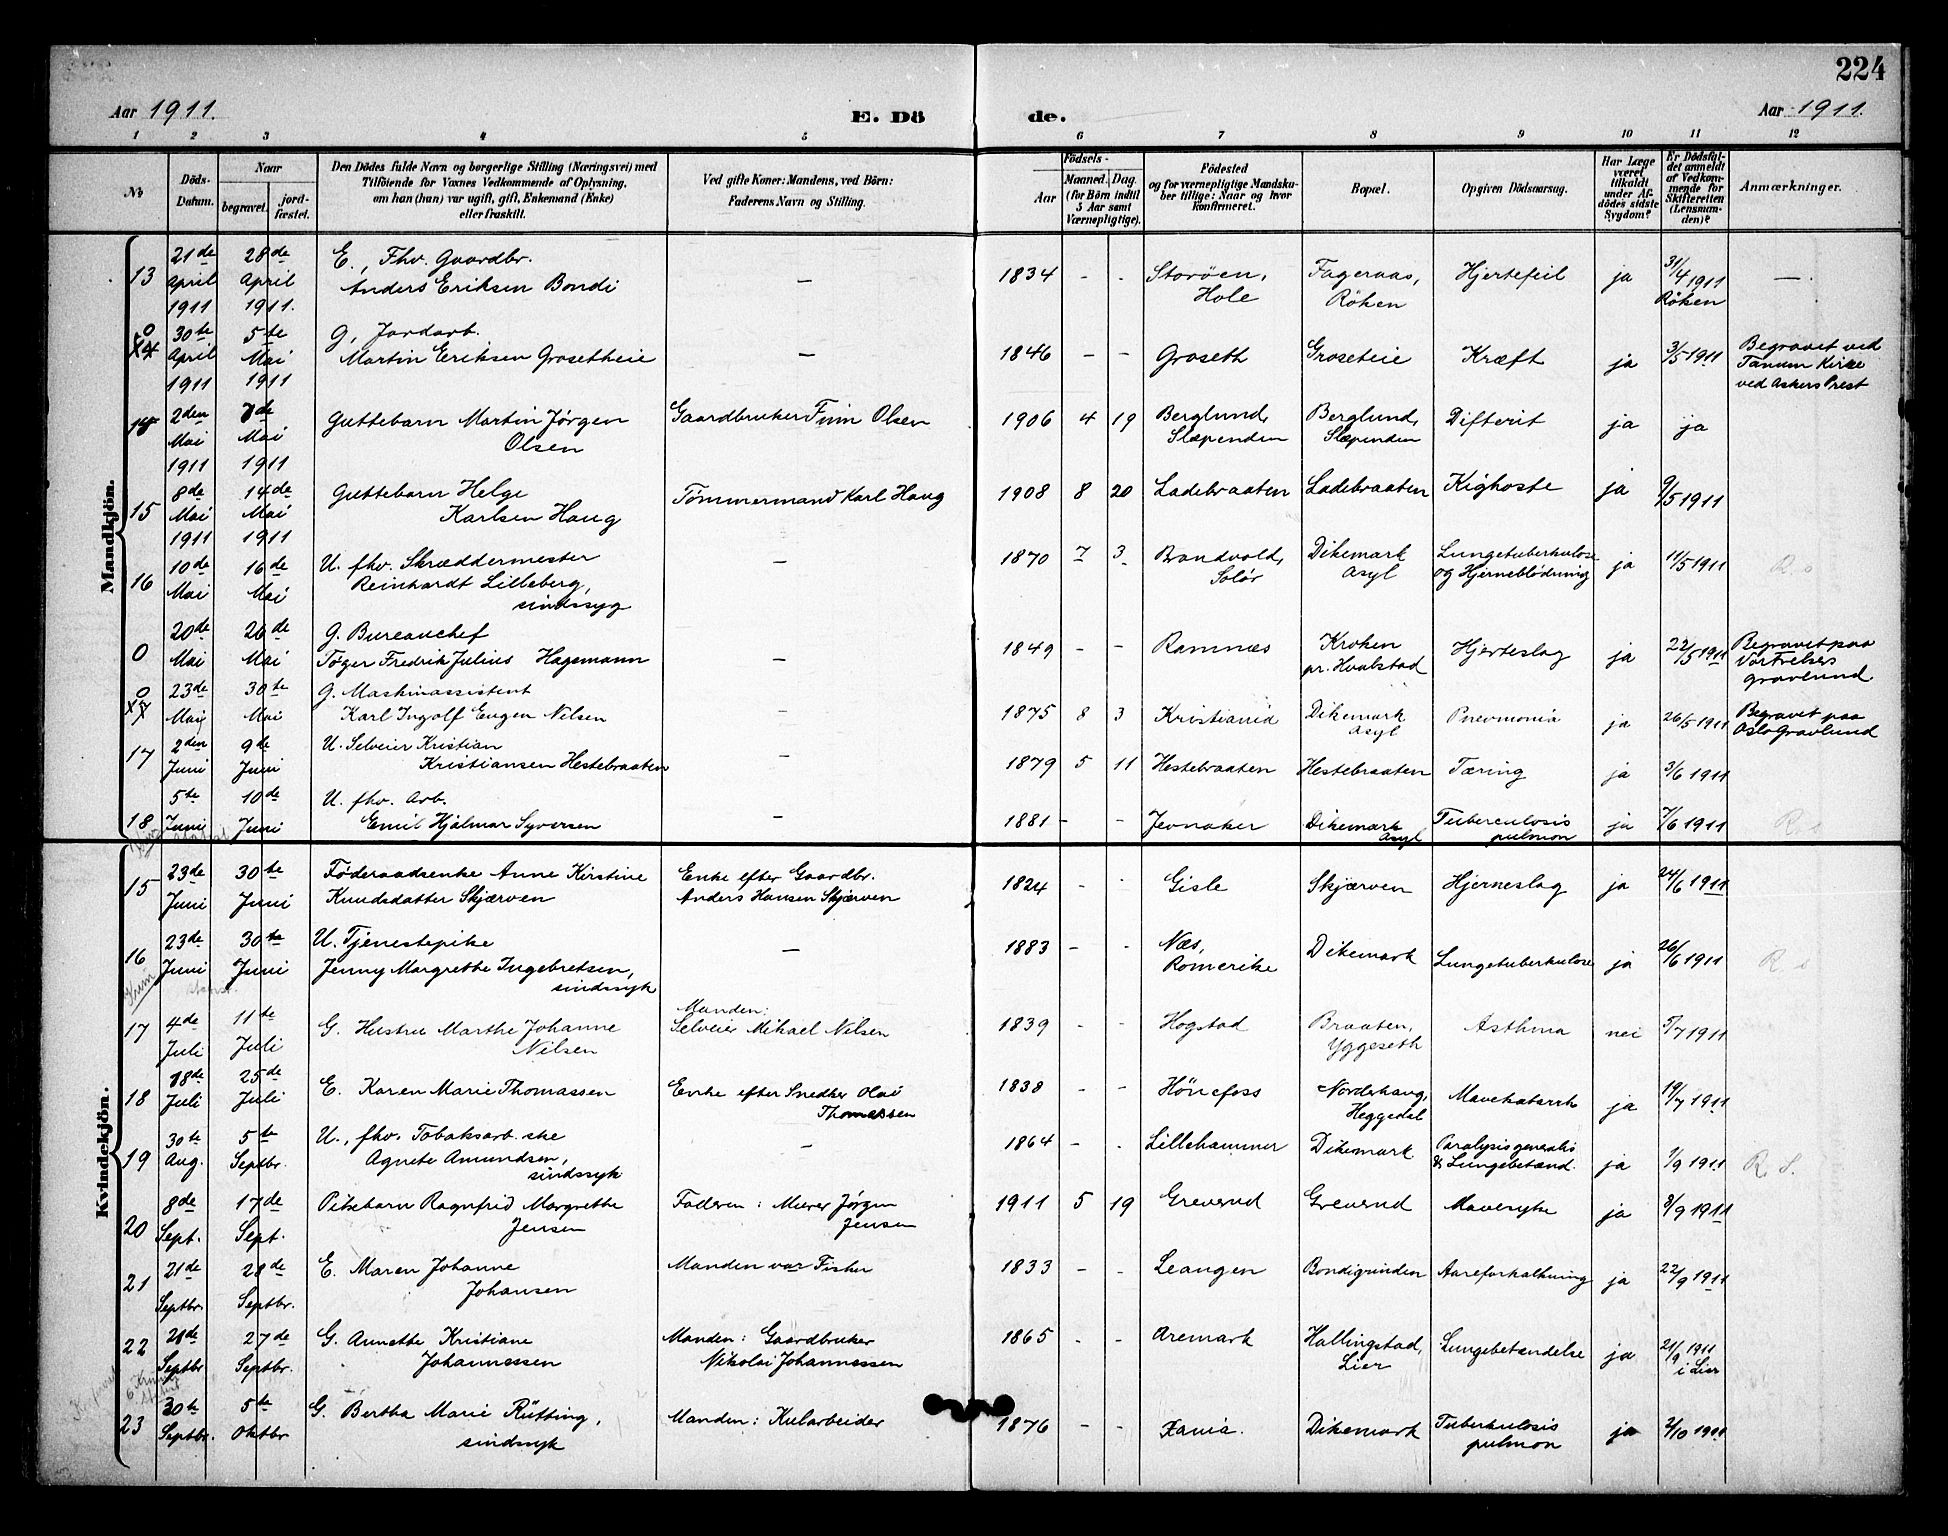 224
Aar 1911.
E. Döde.
Aar 1911.
1 2 3 4 5 6 7 8 9 10 11 12
No
Döds-Datum.
Naar
begravet.
jordfæstet.
Den Dödes fulde Navn og borgerlige Stilling (Næringsvei) med
Tilföiende for Voxnes Vedkommende af Oplysning,
om han (hun) var ugift, gift, Enkemand (Enke)
eller fraskilt.
Ved gifte Koner: Mandens, ved Börn:
Faderens Navn og Stilling.
Födsels-
Aar
Maaned. Dag.
(for Börn indtil
5 Aar samt
Værnepligtige).
Födested
og for værnepligtige Mandskaber tillige: Naar og hvor
konfirmeret.
Bopæl.
Opgiven Dödsaarsag.
Har Læge
været
tilkaldt
under Afdödes sidste
Sygdom?
Er Dödsfaldet anmeldt
af Vedkommende for
Skifteretten
(Lensmanden)?
Anmærkninger.
Mandkjön.
13 21de April 1911 28de April 1911. E., Fhv. Gaardbr. Anders Eriksen Bondi — 1834 - - Storöen, Hole Fageraas, Röken Hjertefeil ja 31/4 1911 Röken —
0 30te April 1911 5te Mai 1911 G, Jordarb. Martin Eriksen Grosetheie — 1846 - - Groseth Groseteie Kræft ja 3/5 1911 Begravet ved Tanum Kirke ved Askers Prest
14 2den Mai 1911 7de Mai 1911 Guttebarn Martin Jørgen Olsen Gaardbruker Finn Olsen 1906 4 19 Berglund, Slæpenden Berglund, Slæpenden Difterit ja ja
15 8de Mai 1911 14de Mai 1911 Guttebarn Helge Karlsen Haug Tømmermand Karl Haug 1908 8 20 Ladebraaten Ladebraaten Kighoste ja 9/5 1911
16 10de Mai 16de Mai U. fhv. Skræddermester Reinhardt Lilleberg, sindssyg — 1870 7 3 Brandvold, Solör Dikemark Asyl Lungetuberkulose og Hjerneblödning ja 11/5 1911 R. s
0 20de Mai 26de Mai G. Bureauchef Tøger Fredrik Julius Hagemann — 1849 - - Ramnæs Kroken pr. Hvalstad Hjerteslag ja 22/5 1911 Begravet paa Vor Frelsers gravlund
0 23de Mai 30te Mai G. Maskinassistent Karl Ingolf Eugen Nilsen - 1875 8 3 Kristiania Dikemark Asyl Pnevmonia ja 26/5 1911 Begravet paa Oslo Gravlund
17 2den Juni 9de Juni U. Selveier Kristian Kristiansen Hestebraaten - 1879 5 11 Hestebraaten Hestebraaten Tæring ja 3/6 1911
18 5te Juni 10de Juni U. fhv. Arb. Emil Hjalmar Syversen - 1881 - - Jevnaker Dikemark Asyl Tuberculosis pulmon ja 7/6 1911
Kvindekjön.
15 23de Juni 30te Juni Føderaadsenke Anne Kirstine Knudsdatter Skjærven Enke efter Gaardbr. Anders Hansen Skjærven 1824 - - Gisle Skjærven Hjerneslag ja 24/6 1911
16 23de Juni 30te Juni U. Tjenestepike Jenny Margrethe Ingebretsen, sindssyk — 1883 - - Næs, Romerike Dikemark Lungetuberkulose ja 26/6 1911 R s
17 4de Juli 11te Juli G. Hustru Marthe Johanne Nilsen Manden: Selveier Mikael Nilsen 1839 - - Hogstad Braaten, Yggeseth Asthma nei 5/7 1911
18 18de Juli 25de Juli E. Karen Marie Thomassen Enke efter Snedker Olai Thomassen 1838 - - Hönefoss Norderhaug, Heggedal Mavekatarrh ja 19/7 1911
19 30te Aug. 5te Septbr. U., fhv. Tobaksarb.ske Agnete Amundsen, sindssyk - 1864 - - Lillehammer Dikemark Paralysis generalis & Lungebetænd. ja 1/9 1911 R. S.
20 8de Sept. 17de Sept. Pikebarn Ragnfrid Margrethe Jensen Faderen: Murer Jørgen Jensen 1911 5 19 Greverud Greverud Mavesyke ja 8/9 1911
21 21de Septbr. 28de Septbr. E. Maren Johanne Johansen Manden var Fisker 1833 - - Leangen Bondigrinden Aareforkalkning ja 22/9 1911
22 21de Septbr 27de Septbr. G. Annette Kristiane Johannessen Manden: Gaardbruker Nikolai Johannessen 1865 - - Aremark Hallingstad, Lier Lungebetændelse ja 21/9 1911 i Lier
23 30te Septbr. 5te Oktbr G. Bertha Marie Rütting, sindssyk Manden: Kularbeider 1876 - - Xania. Dikemark Tuberkulosis pulmon ja 2/10 1911